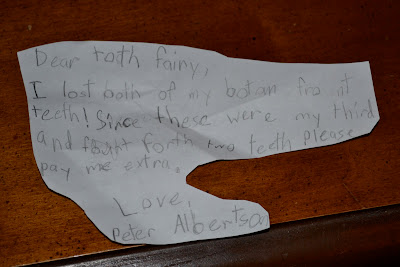 Dear toth fairy,
I lost both of my botom front
teeth! Since these were my third
and forth two teeth please
pay me extra.
Love,
Peter Albertsa